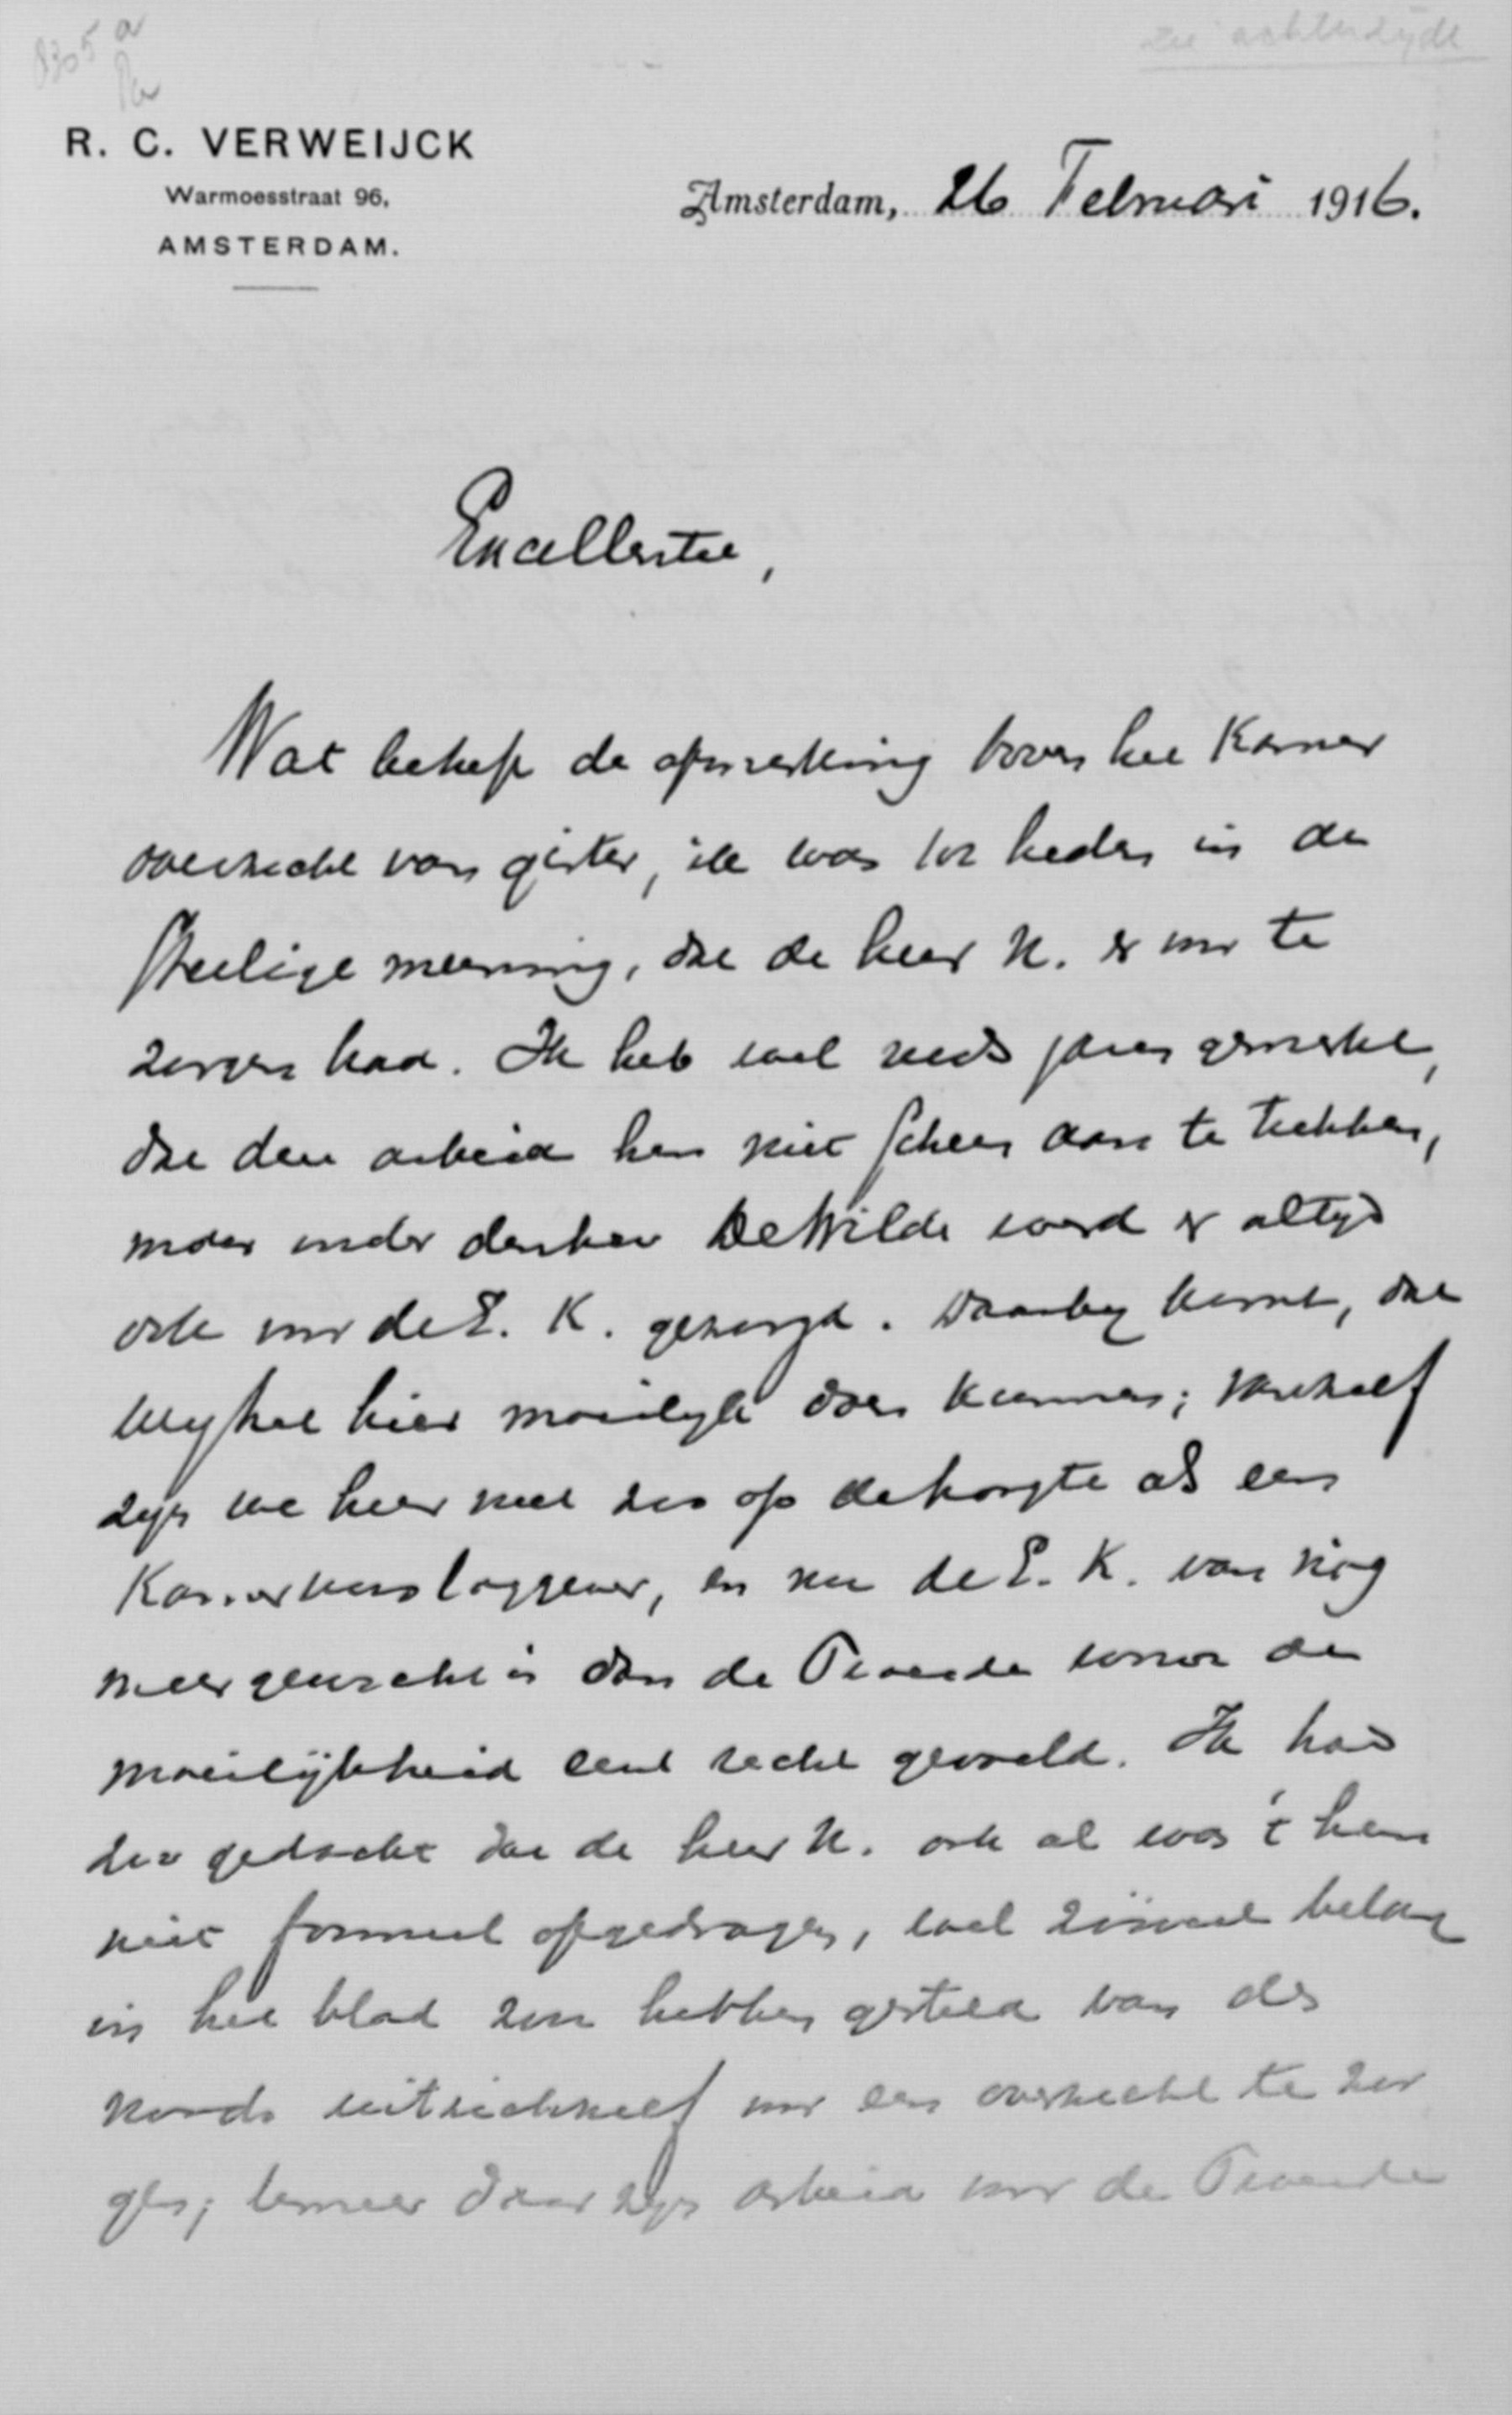 8305 a
zie achterzijde
R. C. VERWEIJCK
Warmoesstraat 96,
AMSTERDAM.
Amsterdam, 26 Februari 1916.
Excellentie,
Wat betreft de opmerking boven het Kamer
overzicht van gister, ik was tot heden in de
stellige meening, dat de heer N. er voor te
zorgen had. Ik heb wel reeds jaren gemerkt,
dat deze arbeid hem niet scheen aan te trekken,
maar onder den heer De Wilde werd er altijd
ook voor de E. K. gezorgd. Daarbij komt, dat
wij het hier moeilijk doen kunnen; vanzelf
zijn we hier niet zoo op de hoogte als een
Kamerverslaggever, en nu de E. K. van nog
meer gewicht is dan de Tweede wordt de
moeilijkheid eerst recht gevoeld. Ik had
zoo gedacht dat de heer N. ook al was 't hem
niet formeel opgedragen, wel zooveel belang
in het blad zou hebben gesteld van des
noods uit zichzelf voor een overzicht te zor
gen; temeer daar zijn arbeid voor de Tweede